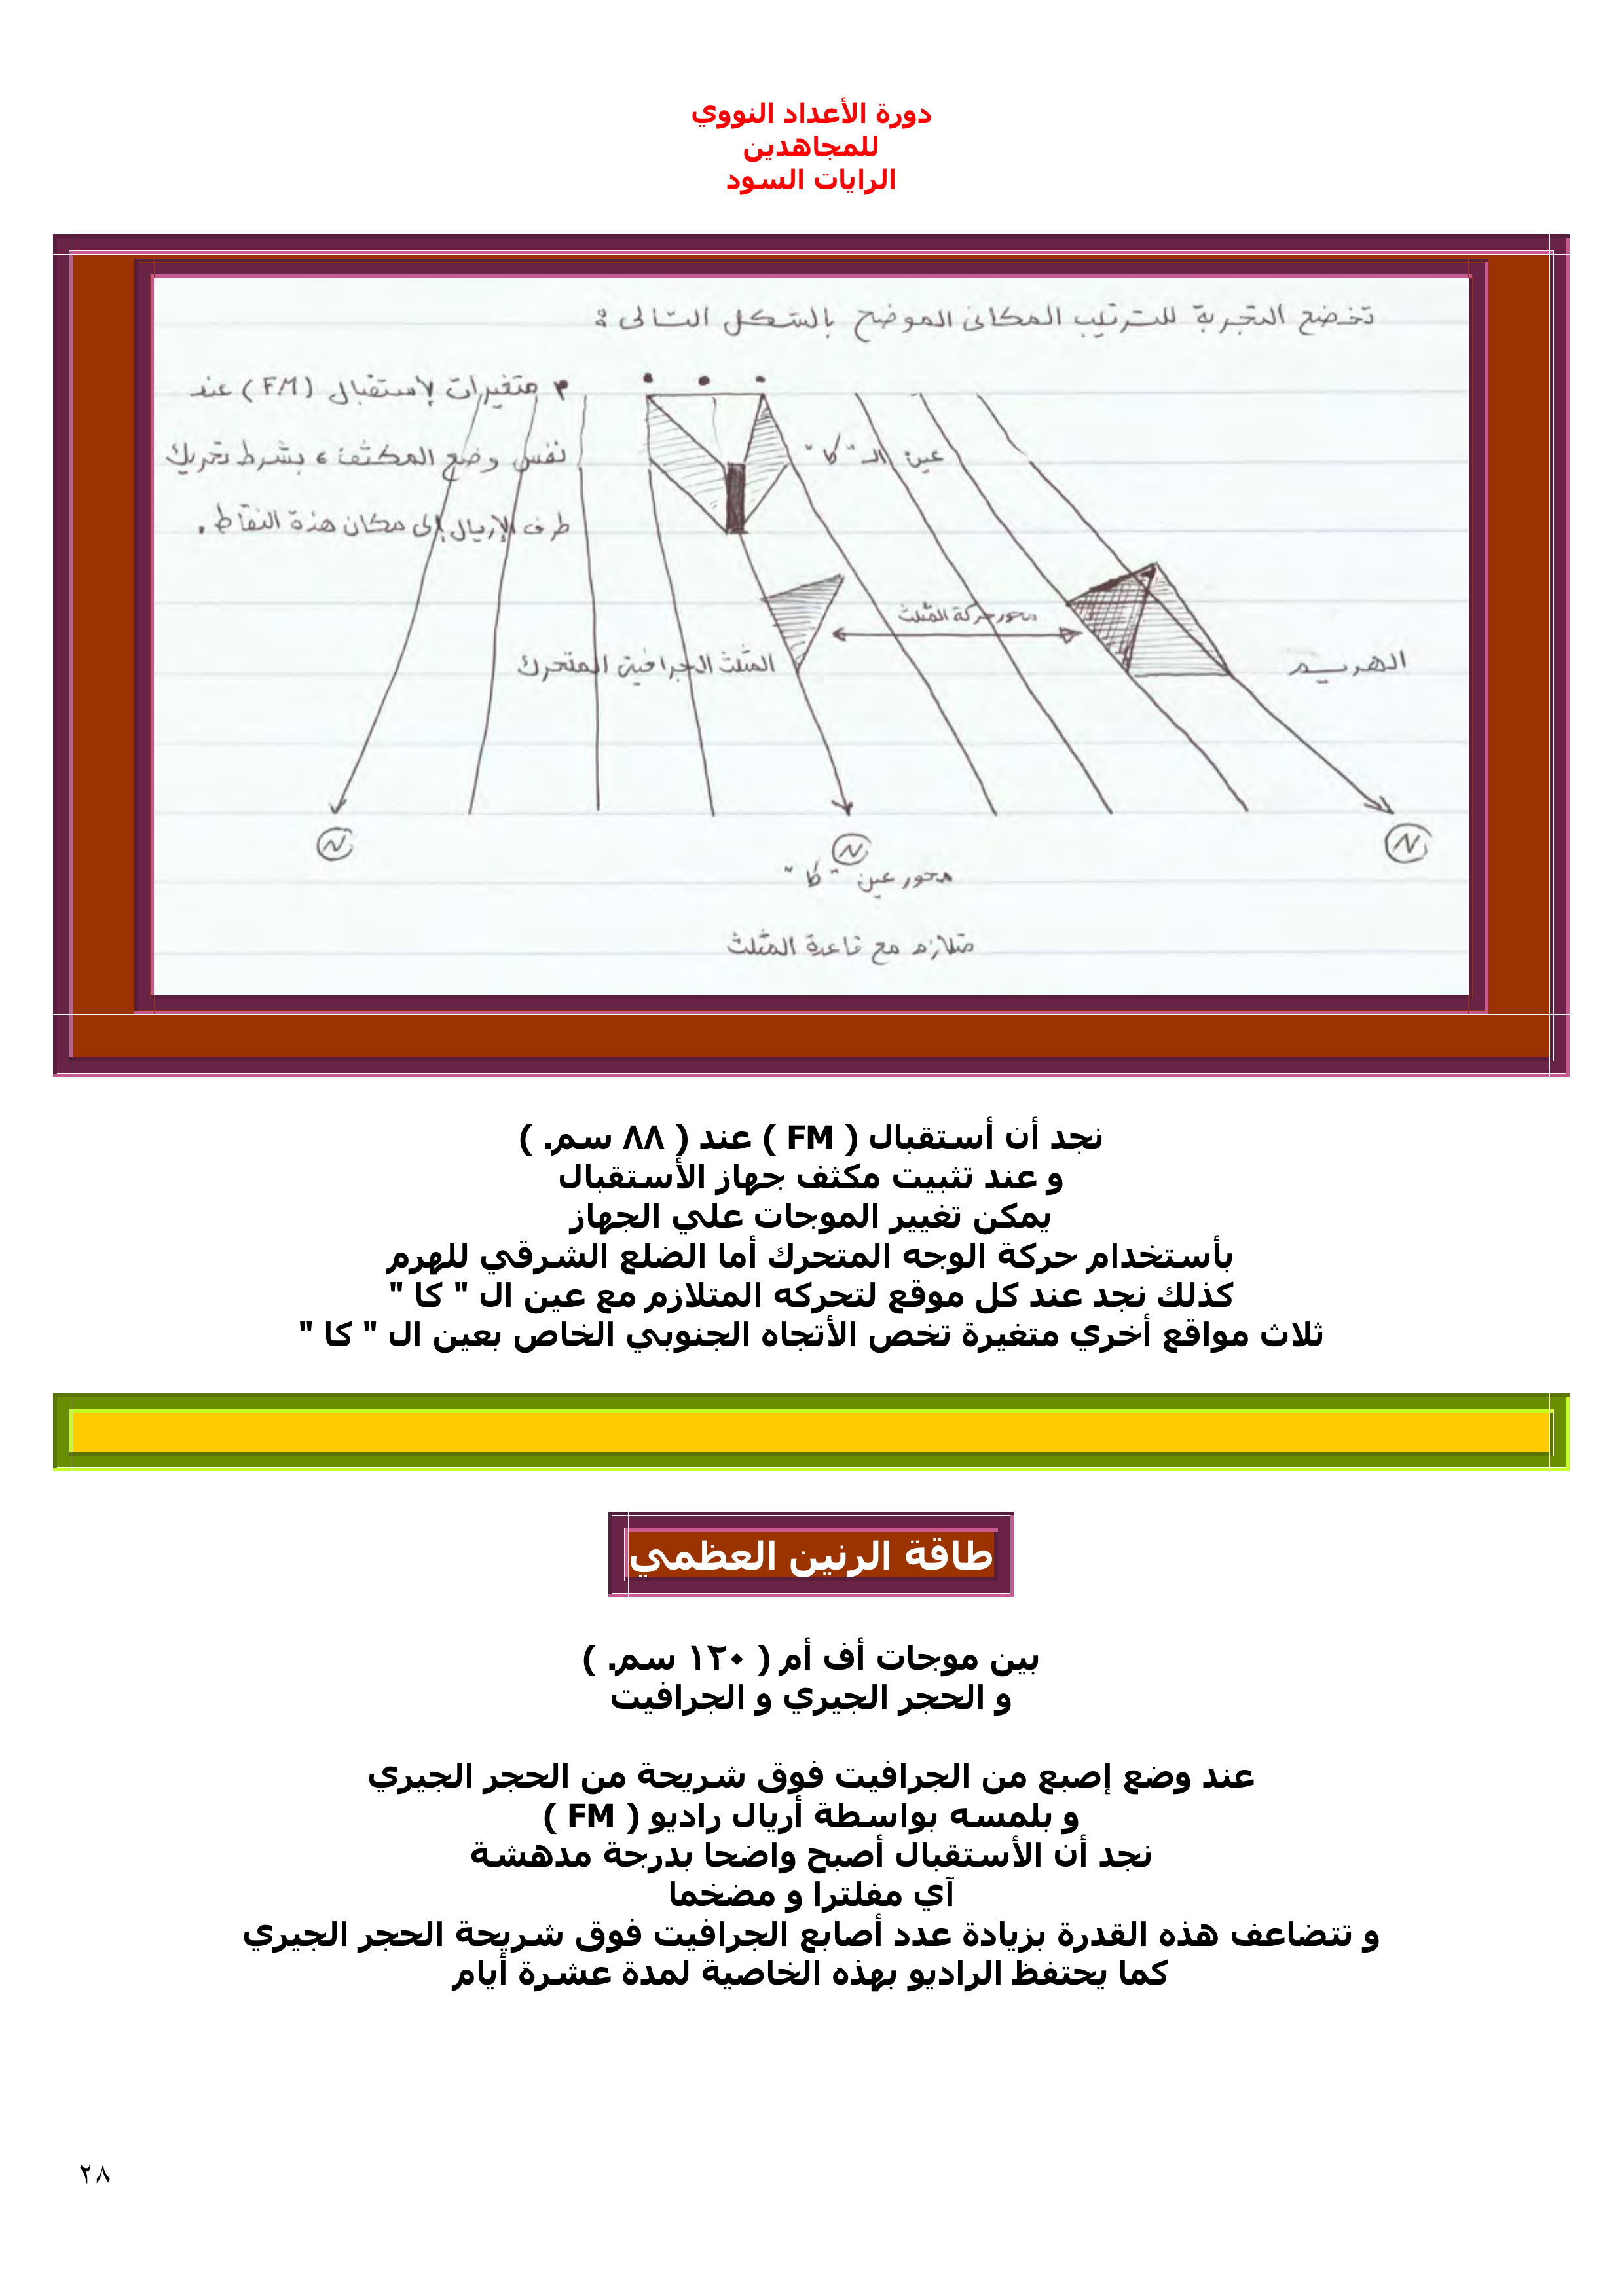 دورة الأعداد النووي
للمجاهدين
الرايات السود
تخضع التجربة للترتيب المكانى الموضح بالشكل التالى :
٣ متغيرات لإستقبال (FM) عند
نفس وضع المكثف ، بشرط تحريك
طرف الإريال إلى مكان هذة النقاط .
عين الـ "كا"
محور حركة المثلث
المثلث الجرافيتى المتحرك
الهريم
N
N
N
محور عين "كا"
متلازم مع قاعدة المثلث
نجد أن أستقبال ( FM ) عند ( ٨٨ سم. )
و عند تثبيت مكثف جهاز الأستقبال
يمكن تغيير الموجات علي الجهاز
بأستخدام حركة الوجه المتحرك أما الضلع الشرقي للهرم
كذلك نجد عند كل موقع لتحركه المتلازم مع عين ال " كا "
ثلاث مواقع أخري متغيرة تخص الأتجاه الجنوبي الخاص بعين ال " كا "
طاقة الرنين العظمي
بين موجات أف أم ( ١٢٠ سم. )
و الحجر الجيري و الجرافيت
عند وضع إصبع من الجرافيت فوق شريحة من الحجر الجيري
و بلمسه بواسطة أريال راديو ( FM )
نجد أن الأستقبال أصبح واضحا بدرجة مدهشة
آي مفلترا و مضخما
و تتضاعف هذه القدرة بزيادة عدد أصابع الجرافيت فوق شريحة الحجر الجيري
كما يحتفظ الراديو بهذه الخاصية لمدة عشرة أيام
٢٨